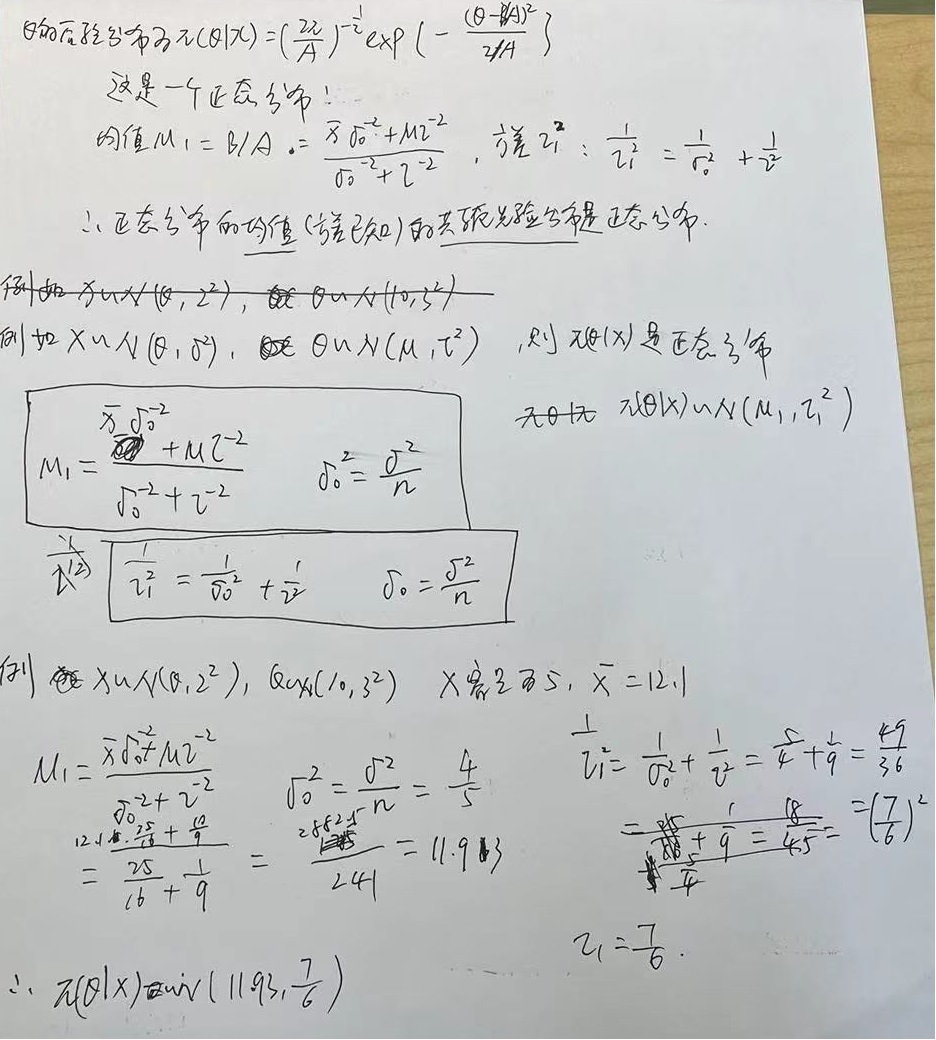 θ的后验分布为π(θ|x) = (2π/A)^{-1/2} exp{ - (θ-B/A)²/(2/A) }
这是一个正态分布!
均值μ₁ = B/A = (x̄σ₀⁻² + μτ⁻²)/(σ₀⁻² + τ⁻²) , 方差τ₁² : 1/τ₁² = 1/σ₀² + 1/τ²
∴ 正态分布的均值(方差已知)的共轭先验分布是正态分布.
例如 X∼N(θ, 2²), θ∼N(10, 3²)
例如 X∼N(θ, σ²), θ∼N(μ, τ²) , 则π(θ|x)是正态分布
π(θ|x)∼N(μ₁, τ₁²)
μ₁ = (x̄σ₀⁻² + μτ⁻²)/(σ₀⁻² + τ⁻²) σ₀² = σ²/n
1/τ₁² = 1/σ₀² + 1/τ² σ₀ = σ²/n
例 X∼N(θ, 2²), θ∼N(10, 3²) X容量为5, x̄ = 12.1
μ₁ = (x̄σ₀⁻² + μτ⁻²)/(σ₀⁻² + τ⁻²) σ₀² = σ²/n = 4/5
1/τ₁² = 1/σ₀² + 1/τ² = 5/4 + 1/9 = 49/36
= (12.1·25/16 + 10/9)/(25/16 + 1/9) = 2882.5/241 = 11.93
= (7/6)²
τ₁ = 7/6.
∴ π(θ|x)∼N(11.93, 7/6)